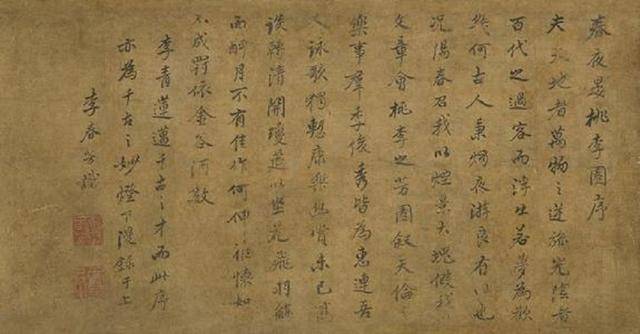 春夜晏桃李園序
夫天地者萬物之逆旅光陰者
百代之過客而浮生若夢為歡
幾何古人秉燭夜游良有以也
況陽春召我以煙景大塊假我
文章會桃李之芳園敘天倫之
樂事羣季俊秀皆為惠連吾
人詠歌獨慙康樂幽賞未已高
談轉清開瓊筵以坐花飛羽觴
而醉月不有佳作何伸雅懷如
不成罰依金谷酒數
李青蓮邁千古之才而此序
亦為千古之妙燈下漫錄于上
李春芳識